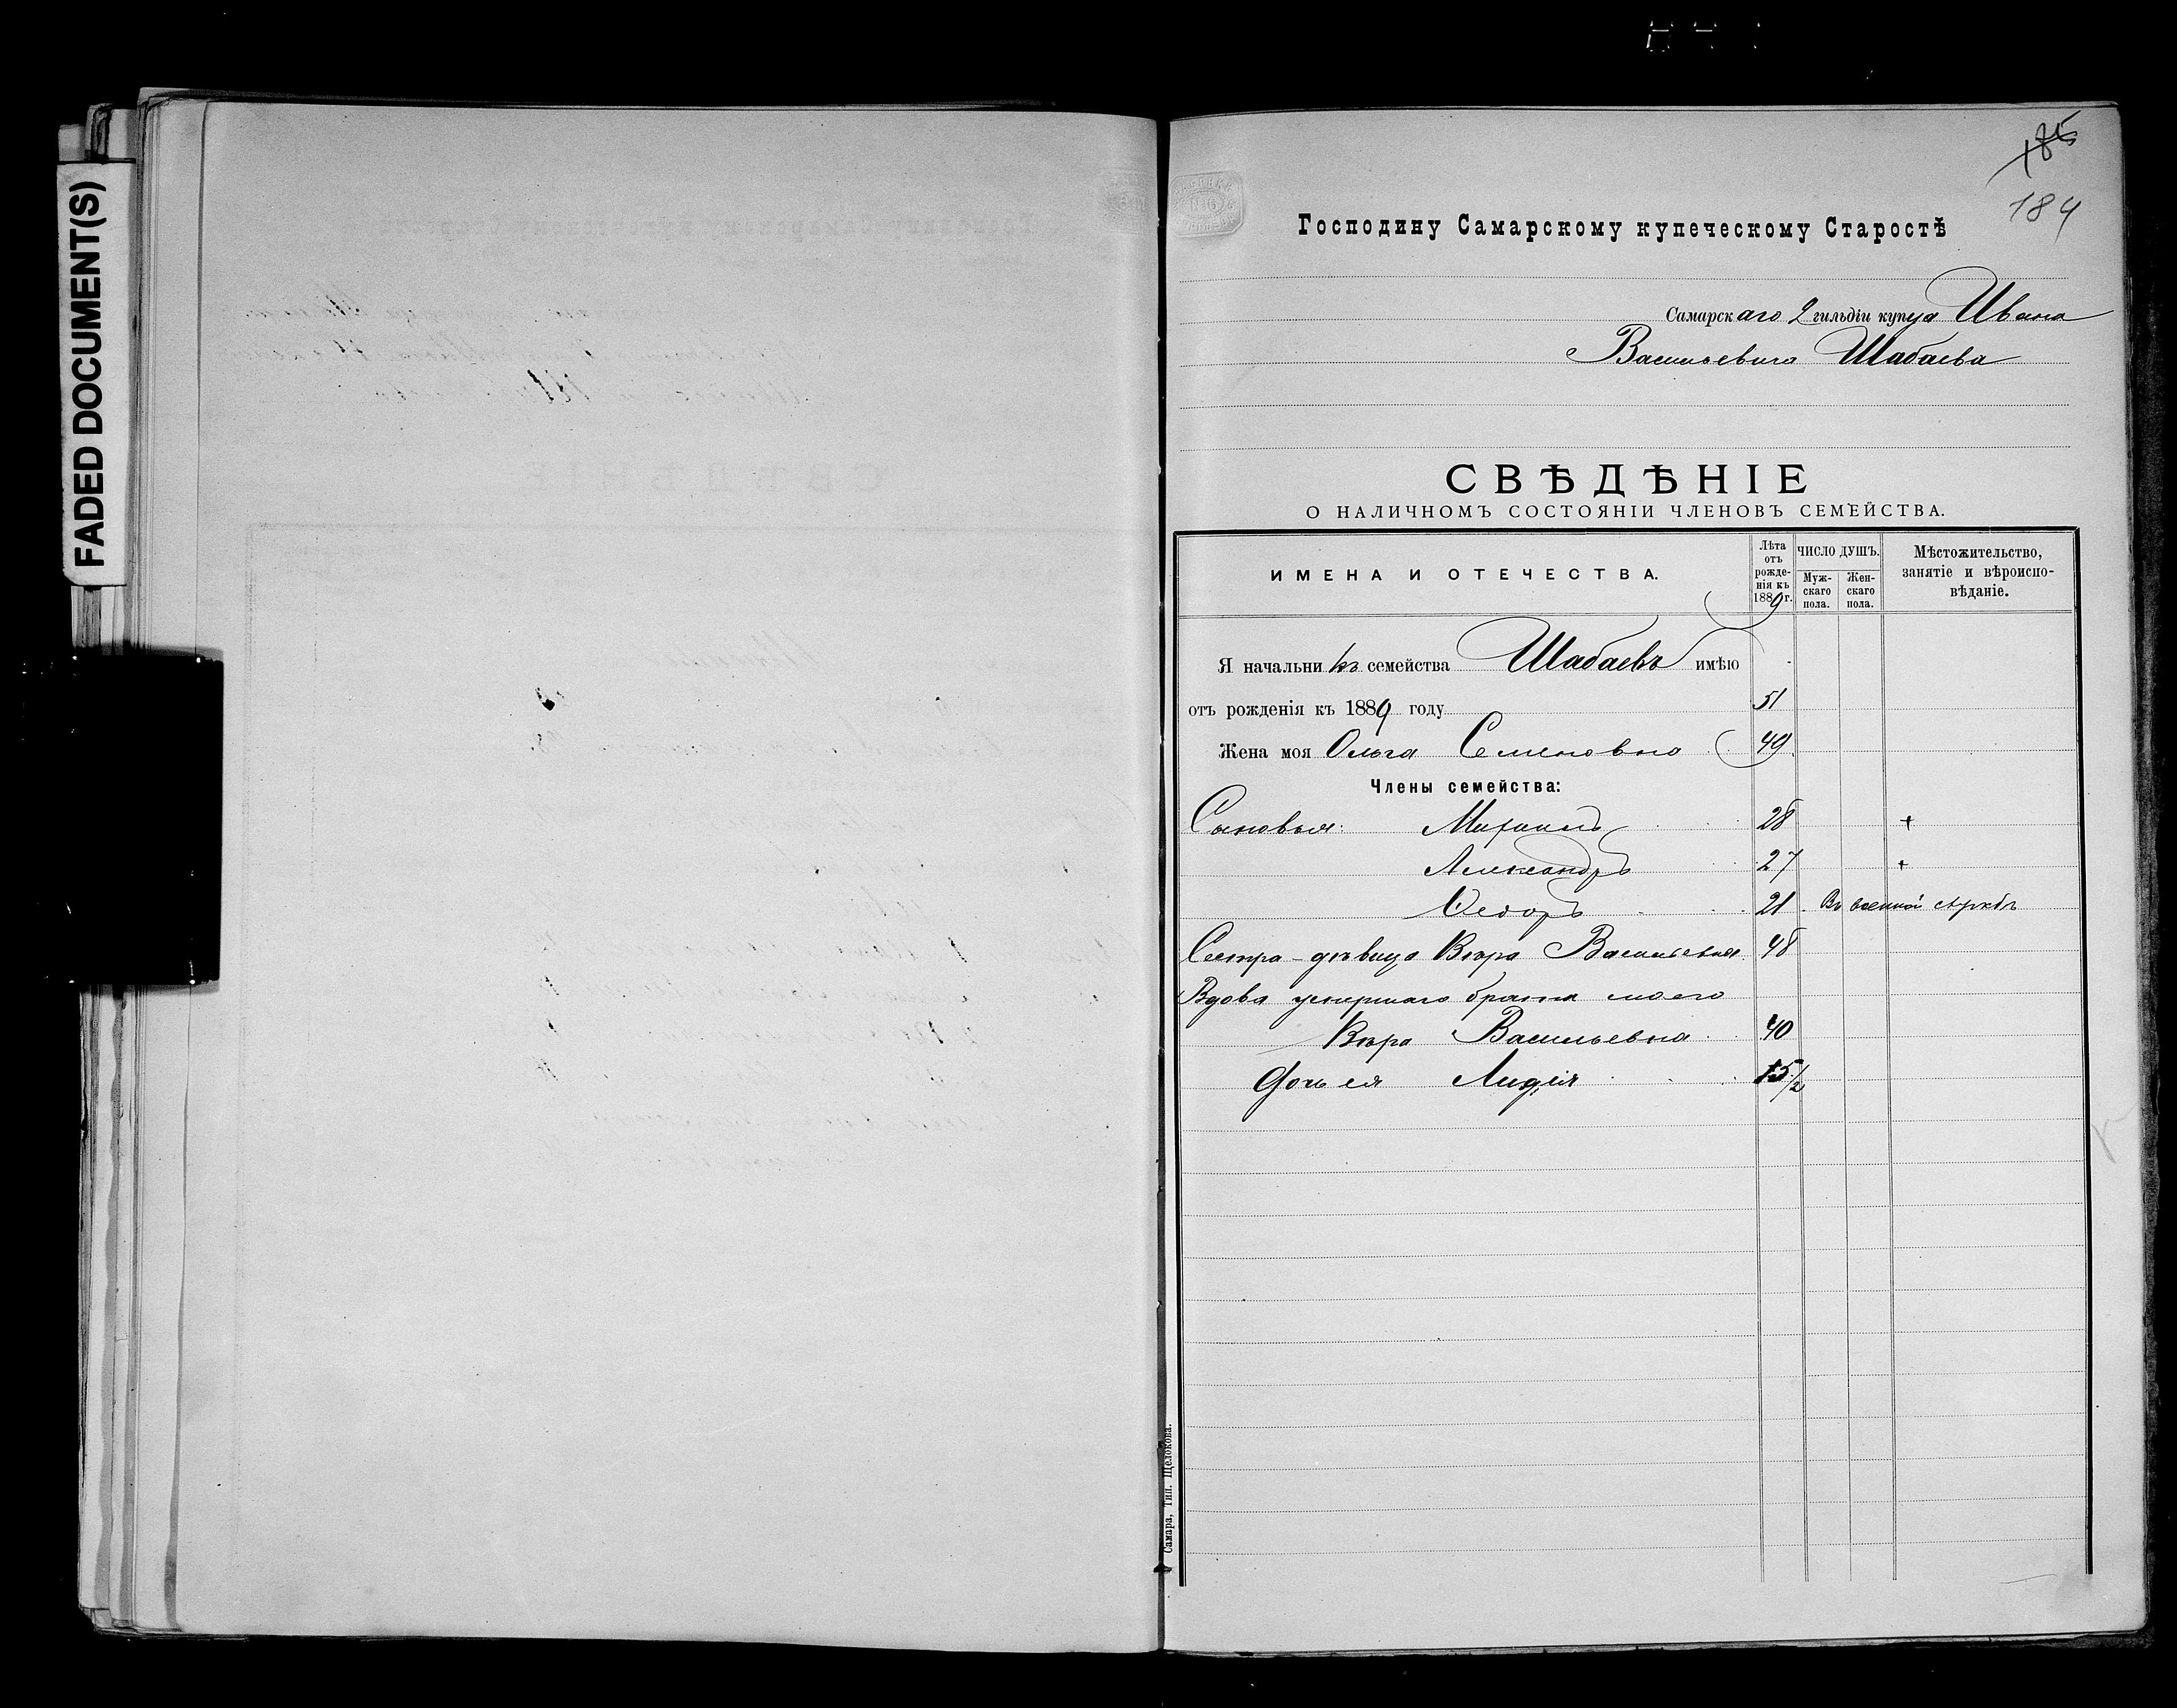 FADED DOCUMENT(S)
185
184
Господину Самарскому купеческому Старостѣ
Самарскаго 2 гильдіи купца Ивана
Васильевича Шабаева
СВѢДѢНІЕ
О НАЛИЧНОМЪ СОСТОЯНІИ ЧЛЕНОВЪ СЕМЕЙСТВА.
ИМЕНА И ОТЕЧЕСТВА.
Лѣта отъ рожденія къ 1889 г.
ЧИСЛО ДУШЪ.
Мужскаго пола.
Женскаго пола.
Мѣстожительство, занятіе и вѣроисповѣданіе.
Я начальникъ семейства Шабаевъ имѣю
отъ рожденія къ 1889 году 51
Жена моя Ольга Семеновна 49
Члены семейства:
Сыновья: Михаилъ 28 +
Александръ 27 +
Ѳедоръ 21 Въ военной службѣ
Сестра-дѣвица Вѣра Васильевна 48
Вдова умершаго брата моего
Вѣра Васильевна 40
Дочь ея Лидія 15/2
Самара, Тип. Щелокова.